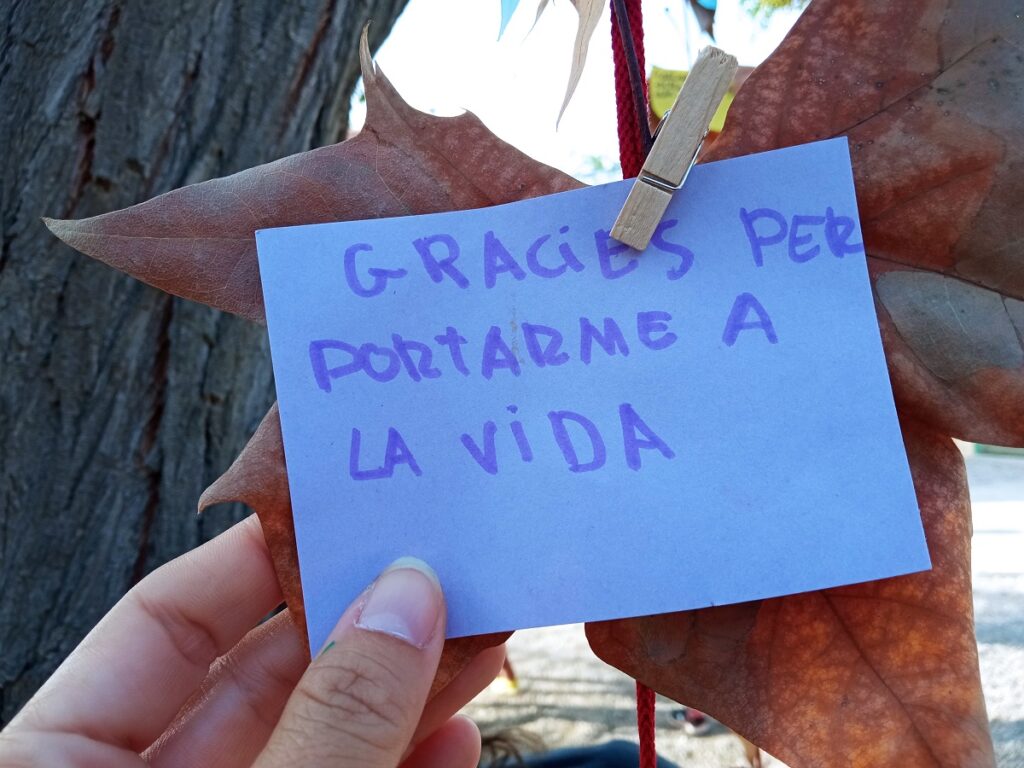 GRACiES PER
PORTARME A
LA ViDA